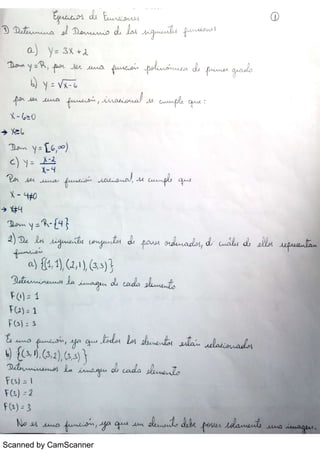 Ejercicios de Funciones ①
1) Determina el Dominio de las siguientes funciones
a) y = 3x + 2
Dom y = ℝ, por ser una función polinómica de primer grado
b) y = √x-6
por ser una función irracional se cumple que:
x - 6≥0
→ x≥6
Dom y = [6,∞)
c) y = x-2 / x-4
Por ser una función racional, se cumple que
x - 4≠0
→ x≠4
Dom y = ℝ-{4}
2) De los siguientes conjuntos de pares ordenados, di cuáles de ellos representan
función
a) {(1,1), (2,1), (3,3)}
Determinemos la imagen de cada elemento
F(1) = 1
F(2) = 1
F(3) = 3
Es una función, ya que todos los elementos están relacionados
b) {(3,1), (3,2), (3,3)}
Determinemos la imagen de cada elemento
F(3) = 1
F(3) = 2
F(3) = 3
No es una función, ya que un elemento debe poseer solamente una imagen.
Scanned by CamScanner